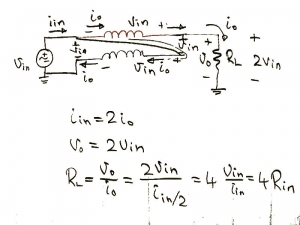 iin io Vin io
Vin + Vin + Vo RL 2Vin
io Vin io
iin = 2io
Vo = 2Vin
RL = Vo/io = 2Vin/(iin/2) = 4 Vin/iin = 4Rin